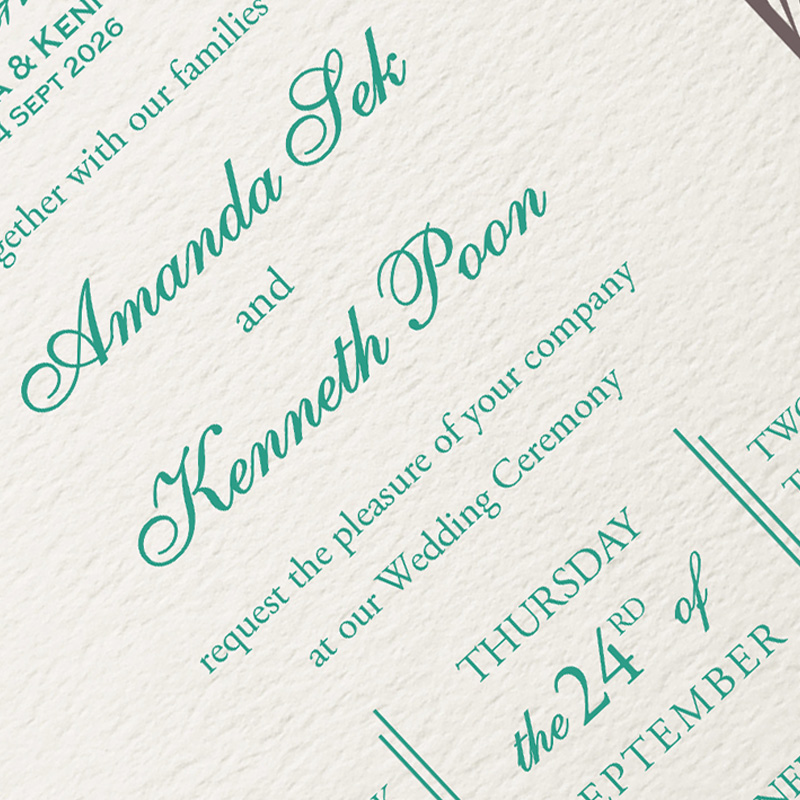 & KEN
4 SEPT 2026
gether with our families
Amanda Sek
and
Kenneth Poon
request the pleasure of your company
at our Wedding Ceremony
THURSDAY
the 24RD of
EPTEMBER
TWO